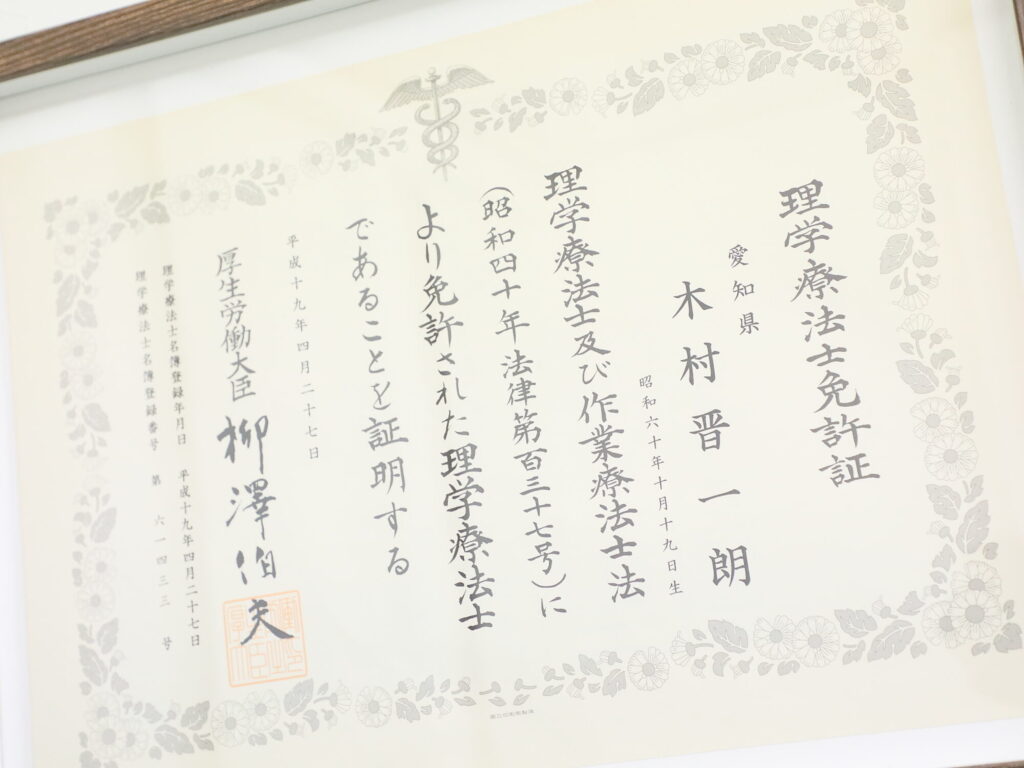 理学療法士免許証
愛知県
木村晋一朗
昭和六十年十月十九日生
理学療法士及び作業療法士法
(昭和四十年法律第百三十七号)に
より免許された理学療法士
であることを証明する
平成十九年四月二十七日
厚生労働大臣 柳澤伯夫
理学療法士名簿登録年月日 平成十九年四月二十七日
理学療法士名簿登録番号 第 六一四三三 号